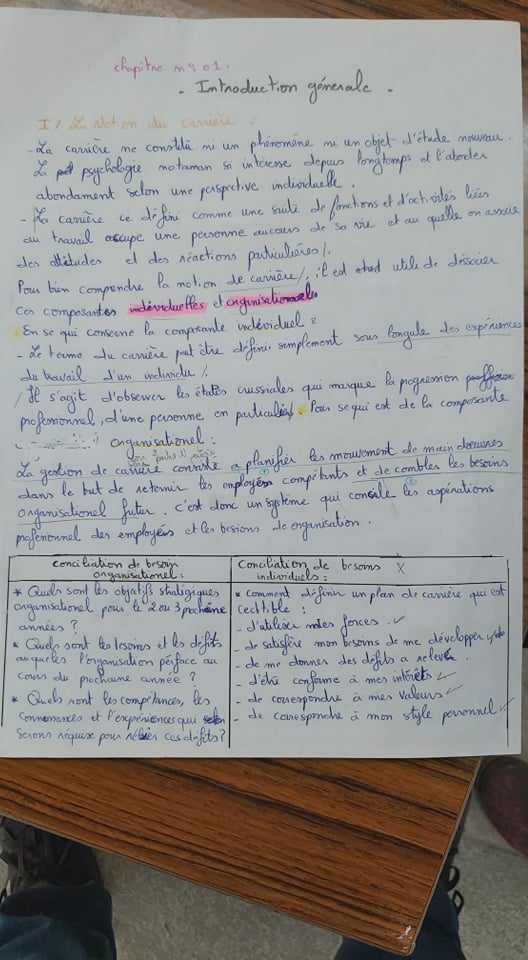 chapitre n° 01:
- Introduction génerale -
I/ La Notion du carrière :
- La carrière ne constitu ni un phénomène ni un objet d'étude nouveau.
La psychologie notaman si intéresse depuis longtemps et l'aborder
abondament selon une perspective individuelle.
- La carrière ce défini comme une suite de fonctions et d'activités liées
au travail occupe une personne aucours de sa vie et au quelle on associe
des attitudes et des réactions particulières/.
Pour bien comprendre la notion de carrière/, il est utile de déssocier
Ces composantes individuelles et organisationnels
En se qui conserne la composante individuel :
- Le terme du carrière peut être défini simplement sous longule des expériences
de travail d'un individu/.
/ Il s'agit d'observer les états crussiales qui marque la progression
professionnel, d'une personne en particulier/. Pour se qui est de la composante
organisationel :
La gestion de carrière consiste a planifier les mouvement de main doeuvres
dans le but de retenir les employés compétants et de combler les besoins
organisationel futur. c'est donc un système qui concile les aspérations
profesionnel des employés et les besions de organisation.
conciliation de besoin
organisationel :
* Quels sont les objatifs stratigiques
organisationel pour le 2 ou 3 prochaine
années ?
* Quels sont les besoins et les défits
auquels l'organisation perface au
cours du prochaine année ?
* Quels sont les compétances, les
connensances et l'expériences qui
serons réquise pour ces défits ?
Conciliation de besoins X
individuels :
* comment définir un plan de carrière qui est
cedtible :
- d'utiliser mes forces.
- de satisfère mon besoins de me développer
- de me donner des défits a relevé.
- d'être conforme à mes intérêts
- de correspondre à mes valeurs
- de correspondre à mon style personnel